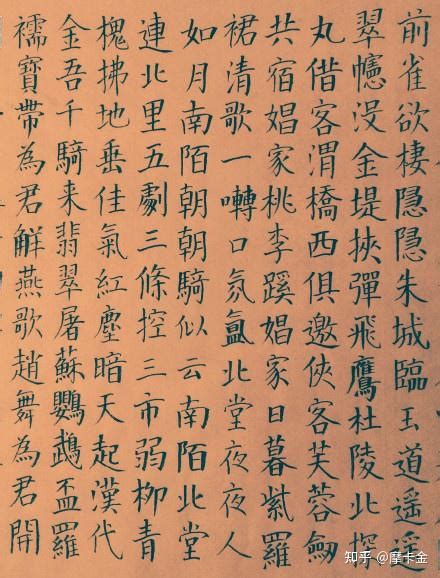 前雀欲棲隱隱朱城臨玉道遥遥
翠幰没金堤挾彈飛鷹杜陵北探
丸借客渭橋西俱邀俠客芙蓉劒
共宿娼家桃李蹊娼家日暮紫羅
裙清歌一囀口氛氲北堂夜夜人
如月南陌朝朝騎似云南陌北堂
連北里五劇三條控三市弱柳青
槐拂地垂佳氣紅塵暗天起漢代
金吾千騎来翡翠屠蘇鸚鵡盃羅
襦寶帶為君解燕歌趙舞為君開
知乎 @摩卡金